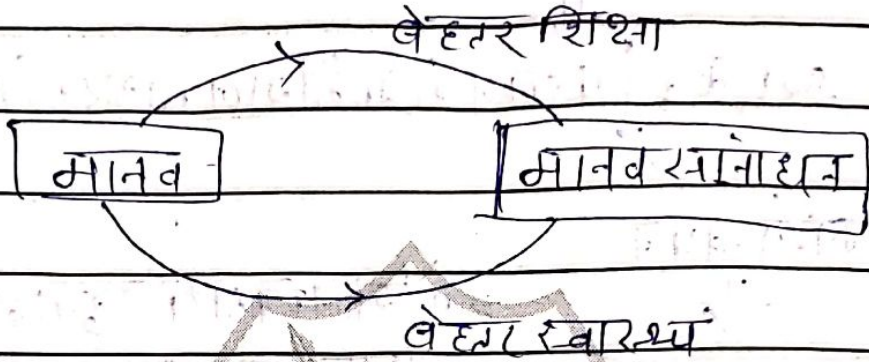 बेहतर शिक्षा
मानव
मानव संसाधन
बेहतर स्वास्थ्य